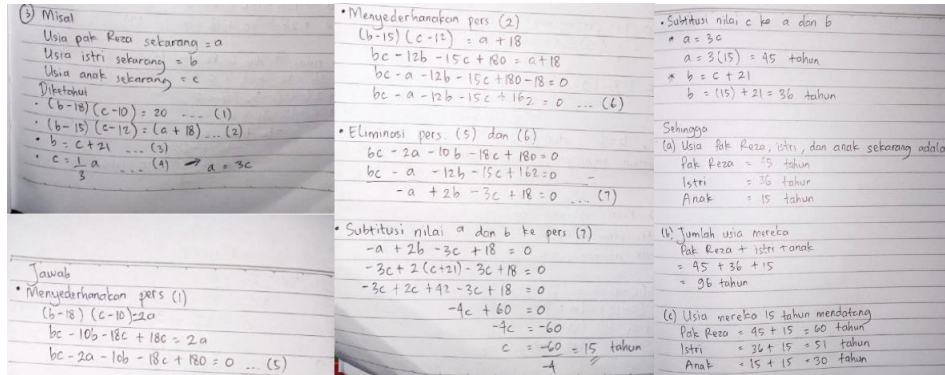 ③ Misal
Usia pak Reza sekarang = a
Usia istri sekarang = b
Usia anak sekarang = c
Diketahui
• (b-18)(c-10) = 2a ... (1)
• (b-15)(c-12) = (a+18) ... (2)
• b = c+21 ... (3)
• c = 1/3 a ... (4) → a = 3c
Jawab
• Menyederhanakan pers (1)
(b-18)(c-10)=2a
bc-10b-18c+180 = 2a
bc-2a-10b-18c+180 = 0 ... (5)
• Menyederhanakan pers (2)
(b-15)(c-12) = a+18
bc-12b-15c+180 = a+18
bc-a-12b-15c+180-18=0
bc-a-12b-15c+162 = 0 ... (6)
• Eliminasi pers. (5) dan (6)
bc-2a-10b-18c+180=0
bc-a-12b-15c+162=0 -
-a+2b-3c+18=0 ... (7)
• Subtitusi nilai a dan b ke pers (7)
-a+2b-3c+18 = 0
-3c+2(c+21)-3c+18 = 0
-3c+2c+42-3c+18 = 0
-4c+60 = 0
-4c = -60
c = -60/-4 = 15 tahun
• Subtitusi nilai c ke a dan b
* a = 3c
a = 3(15) = 45 tahun
* b = c+21
b = (15)+21 = 36 tahun
Sehingga
(a) Usia Pak Reza, istri, dan anak sekarang adala
Pak Reza = 45 tahun
Istri = 36 tahun
Anak = 15 tahun
(b) Jumlah usia mereka
Pak Reza + istri + anak
= 45 + 36 + 15
= 96 tahun
(c) Usia mereka 15 tahun mendatang
Pak Reza = 45 + 15 = 60 tahun
Istri = 36 + 15 = 51 tahun
Anak = 15 + 15 = 30 tahun